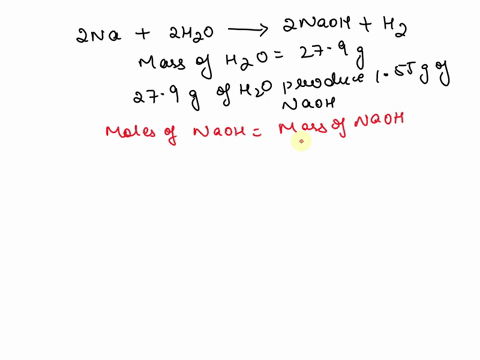 2Na + 2H2O → 2NaOH + H2
Mass of H2O = 27.9 g
27.9 g of H2O produce 1.55 g of
NaOH
Moles of NaOH = Mass of NaOH